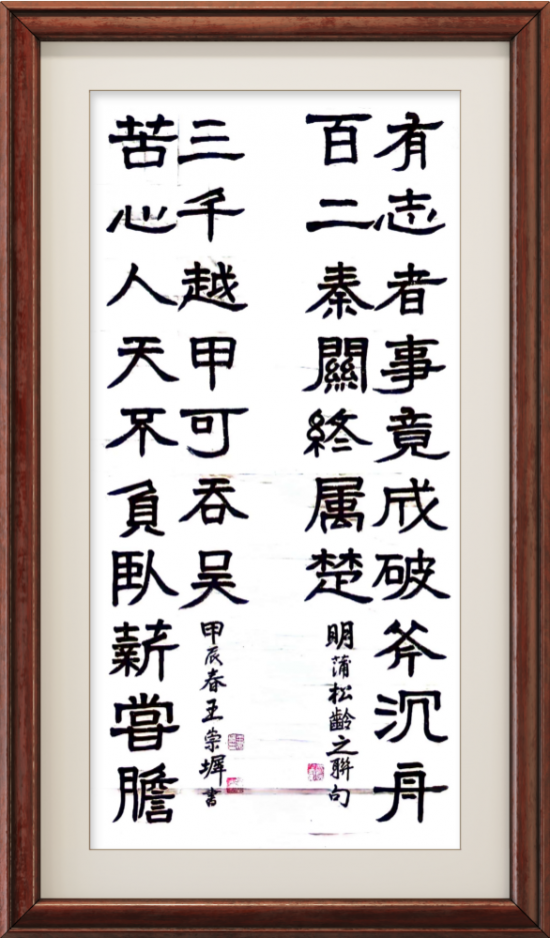 有志者事竟成破斧沉舟
百二秦關終属楚
明蒲松齡之聯句
苦心人天不負臥薪嘗膽
三千越甲可吞吴
甲辰春王崇墀書